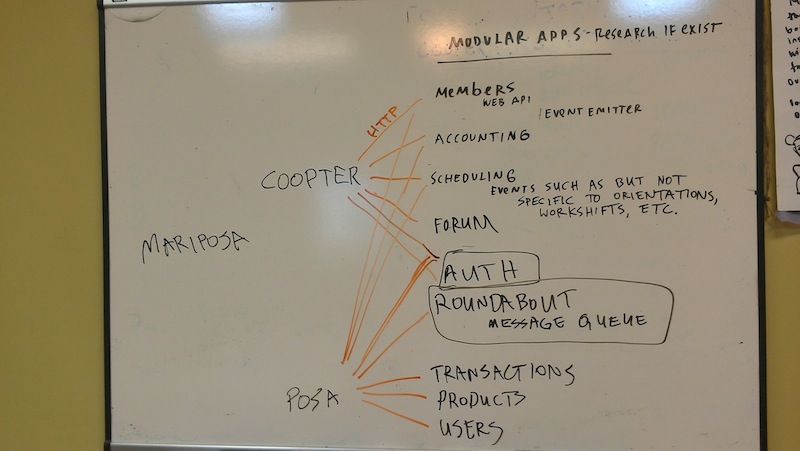 MODULAR APPS - Research IF EXIST
MEMBERS
WEB API
/EVENT EMITTER
HTTP
ACCOUNTING
COOPTER
SCHEDULING
EVENTS SUCH AS BUT NOT
SPECIFIC TO ORIENTATIONS,
WORKSHIFTS, ETC.
FORUM
MARIPOSA
AUTH
ROUNDABOUT
MESSAGE QUEUE
TRANSACTIONS
POSA
PRODUCTS
USERS